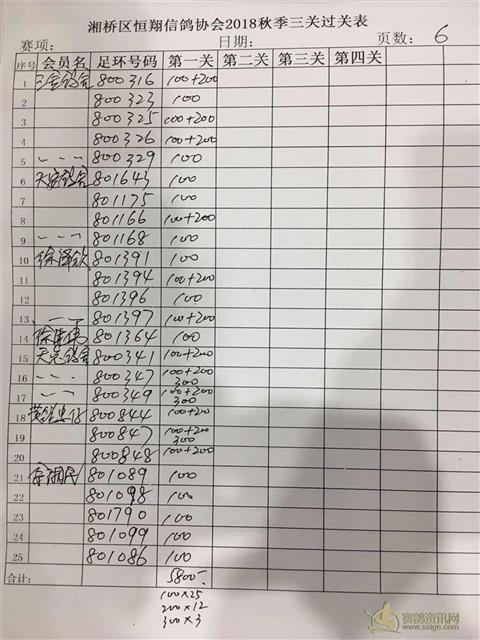 湘桥区恒翔信鸽协会2018秋季三关过关表
赛项: 日期: 页数: 6
序号 会员名 足环号码 第一关 第二关 第三关 第四关
1 800316 100+200
2 800323 100
3 800325 100+200
4 800326 100+200
5 〃 〃 〃 800329 100
6 801643 100
7 801175 100
8 801166 100+200
9 〃 〃 〃 801168 100
10 徐泽钦 801391 100
11 801394 100+200
12 801396 100
13 〃 〃 〃 801397 100+200
14 801364 100
15 800341 100+200
16 〃 〃 〃 800347 100+200 300
17 〃 〃 〃 800349 100+200 300
18 800844 100+200
19 800847 100+200 300
20 800848 100+200
21 801089 100
22 801098 100
23 801790 100
24 801099 100
25 801086 100
合计: 5800
100×25
200×12
300×3
赛鸽资讯网